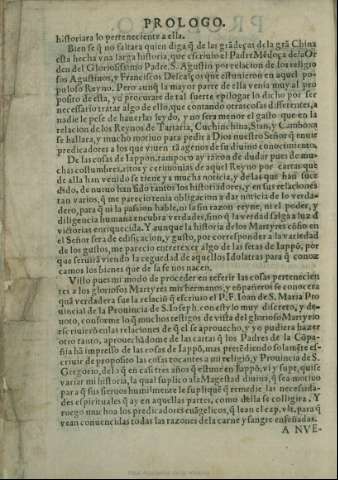 PROLOGO.
historiara lo perteneciente a ella.
Bien se q̃ no faltara quien diga q̃ de las grãdeças de la grã China
esta hecha vna larga historia, que escriuio el Padre Mẽdoça de la Or
den del Gloriosissimo Padre. S. Agustin por relacion de los religio
sos Agustinos, y Franciscos Descalços que estuuieron en aquel po-
puloso Reyno. Pero aunq̃ la mayor parte de ella venia muy al pro
posito de esta, yo procurare de tal suerte epilogar lo dicho por ser
necessario tratar algo de ello, que contando otras cosas differentes, a
nadie le pese de hauerlas leydo, y no sera menor el gusto que en la
relacion de los Reynos de Tartaria, Cuchinchina, Sian, y Camboxa
se hallara, y mucho motiuo para pedir a Dios nuestro Señor q̃ imbie
predicadores a los que viuen tã agenos de su diuino conocimiento.
De las cosas de Iappon, tampoco ay razon de dudar pues de mu-
chas costumbres, ritos y cerimonias de aquel Reyno por cartas que
de alla han venido se tiene ya mucha noticia, y de las que han suce
dido, de nueuo han sido tantos los historiadores, y en sus relaciones
tan varios, q̃ me parecio tenia obligacion a dar noticia de lo verda-
dero, para q̃ ni la passion hable, ni la sin razon reyne, ni el poder, y
diligencia humana encubra verdades, sino q̃ la verdad salga a luz d̃
victorias enriquecida. Y aunque la historia de los Martyres cõsio en
el Señor sera de edificacion, y gusto, por corresponder a la variedad
de los gustos, me parecio entretexer algo de las setas de Iappõ, por
que seruira viendo la ceguedad de aquellos Idolatras para q̃ conoz
camos los bienes que de la fe nos nacen.
Visto pues mi modo de proceder en referir las cosas pertenecien
tes a los gloriosos Martyres mis hermanos, y cõpañeros se conocera
quã verdadera fue la relaciõ q̃ escriuio el P. F. Ioan de S. Maria Pro
uincial de la Prouincia de S. Ioseph, con estylo muy discreto, y de-
uoto, conforme lo q̃ muchos testigos de vista del glorioso Martyrio
escriuierõ en las relaciones de q̃ el se aprouecho, y yo pudiera hazer
otro tanto, aprouechãdome de las cartas q̃ los Padres de la Cõpa-
ñia hã impresso de las cosas de Iappõ, mas pretẽdiendo solamẽte es-
criuir de proposito las cosas tocantes a mi religiõ, y Prouincia de S.
Gregorio, de lo q̃ en casi tres años q̃ estuue en Iappõ, vi y supe, quise
variar mi historia, la qual suplico a la Magestad diuina, q̃ sea motiuo
para q̃ sus sieruos humilmente le supliquẽ q̃ remedie las necessida-
des espirituales q̃ ay en aquellas partes, como della se colligira. Y
ruego mucho a los predicadores euãgelicos, q̃ lean el cap. vlt, para q̃
vean conuencidas todas las razones de la carne y sangre enseñadas.
A NVE-